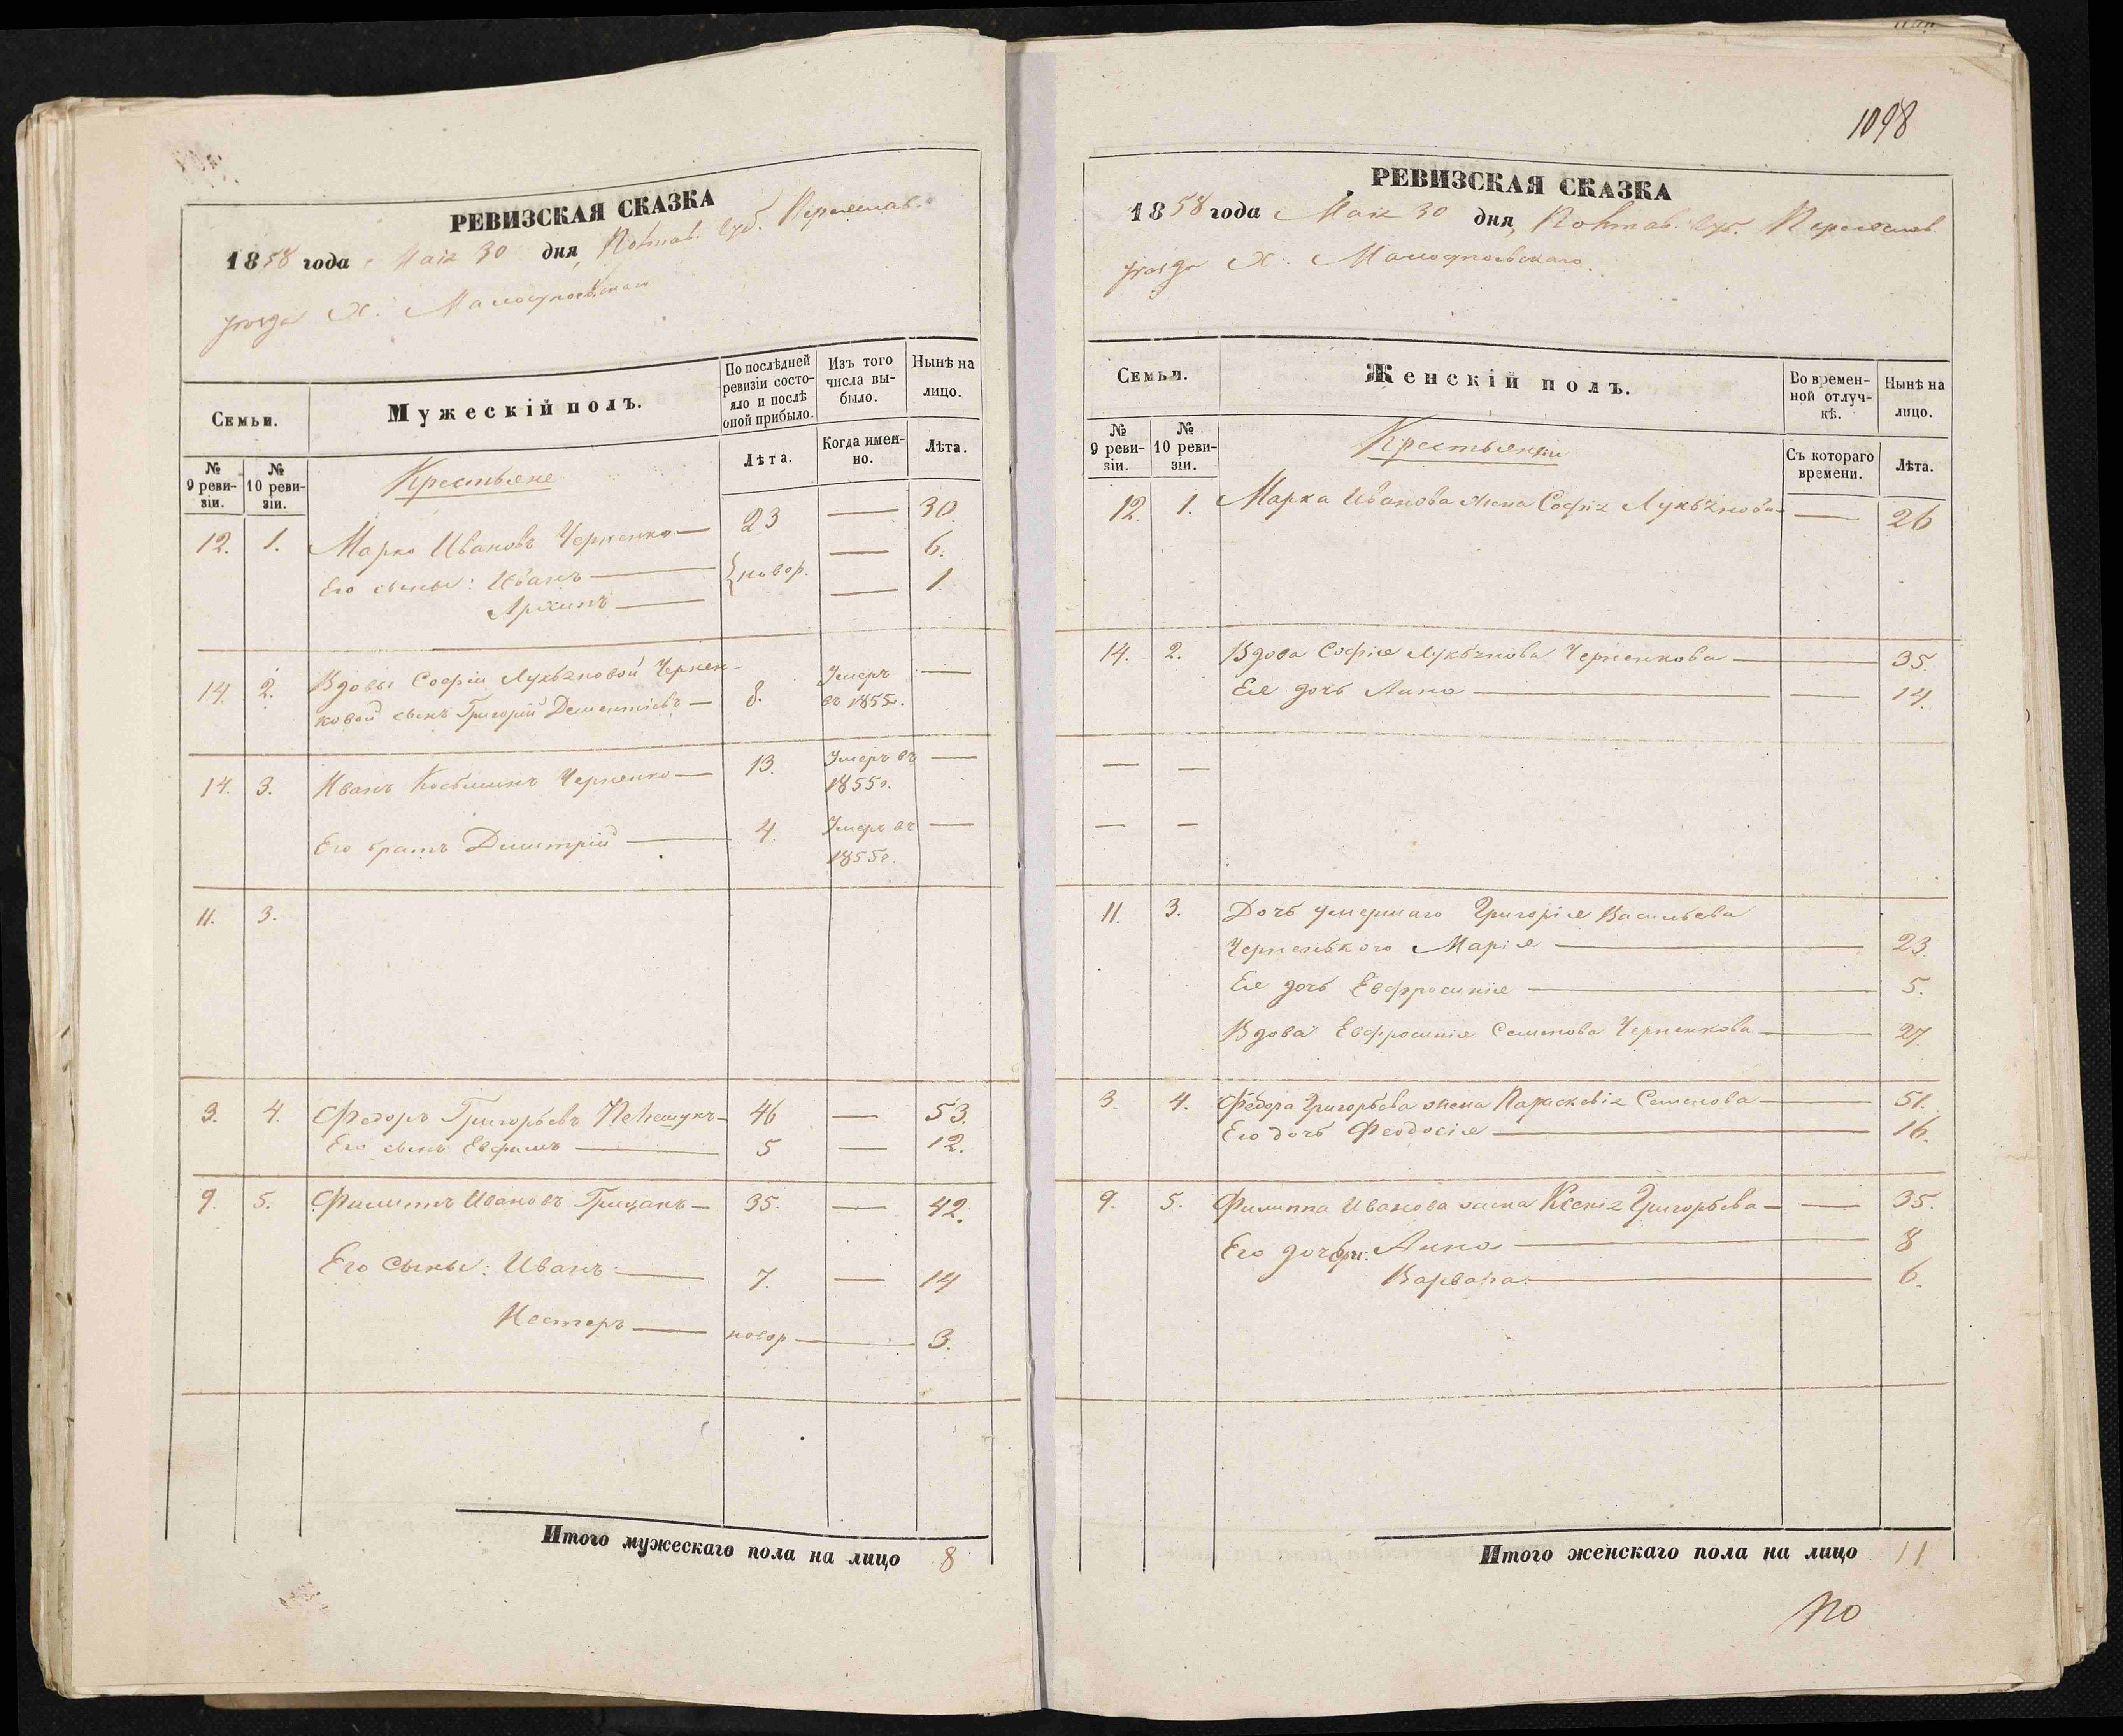 РЕВИЗСКАЯ СКАЗКА
1858 года Маія 30 дня, Полтав. Губ. Переяслав.
уезда Х. Малосупоевскаго
Семьи.
Мужескій полъ.
По послѣдней ревизіи состояло и послѣ оной прибыло.
Изъ того числа выбыло.
Нынѣ на лицо.
№ 9 ревизіи.
№ 10 ревизіи.
Крестьяне
Лѣта.
Когда именно.
Лѣта.
12. 1. Марко Ивановъ Черненко — 23 — 30.
Его сыны: Иванъ — новор. — 6.
Архипъ — — 1.
14 2. Вдовы Софіи Лукьяновой Чернен-
ковой сынъ Григорій Дементіевъ — 8. Умеръ въ 1855г. —
14. 3. Иванъ Косьминъ Черненко — 13. Умеръ въ 1855г. —
Его братъ Димитрій — 4. Умеръ въ 1855г. —
11. 3.
3. 4. Федоръ Григорьевъ — 46 — 53.
Его сынъ Ефимъ — 5 — 12.
9. 5. Филиппъ Ивановъ Грицанъ — 35. — 42.
Его сыны: Иванъ — 7. — 14
Нестеръ — новор — 3.
Итого мужескаго пола на лицо 8
1098
РЕВИЗСКАЯ СКАЗКА
1858 года Маія 30 дня, Полтав. Губ. Переяслав.
уезда Х. Малосупоевскаго.
Семьи.
Женскій полъ.
Во временной отлучкѣ.
Нынѣ на лицо.
№ 9 ревизіи.
№ 10 ревизіи.
Крестьянки
Съ котораго времени.
Лѣта.
12. 1. Марка Иванова жена Софія Лукьянова — — 26
14. 2. Вдова Софія Лукьянова Черненкова — 35.
Ея дочь Анна — — 14.
— —
— —
11. 3. Дочь умершаго Григорія Васильева
Черненького Марія — 23.
Ея дочь Евфросинія — 5.
Вдова Евфросинія Семенова Черненкова — 27
3. 4. Федора Григорьева жена Параскевія Семенова — 51.
Его дочь Феодосія — 16.
9. 5. Филиппа Иванова жена Ксенія Григорьева — — 35.
Его дочери: Анна — 8
Варвара — 6.
Итого женскаго пола на лицо 11